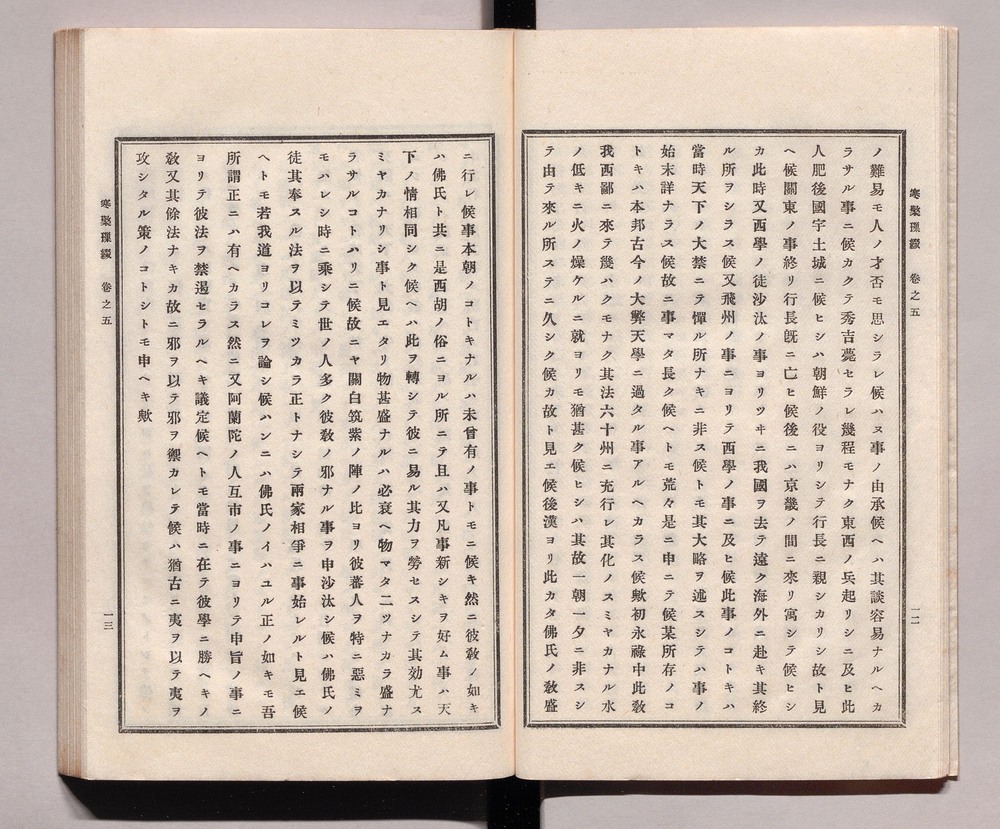 寒檠璅綴 卷之五
一二
ノ難易モ人ノ才否モ思シラレ候ハヌ事ノ由承候ヘハ其談容易ナルヘカ
ラサル事ニ候カクテ秀吉薨セラレ幾程モナク東西ノ兵起リシニ及ヒ此
人肥後國宇土城ニ候ヒシハ朝鮮ノ役ヨリシテ行長ニ親シカリシ故ト見
ヘ候關東ノ事終リ行長旣ニ亡ヒ候後ニハ京畿ノ間ニ來リ寓シテ候ヒシ
カ此時又西學ノ徒沙汰ノ事ヨリツヰニ我國ヲ去テ遠ク海外ニ赴キ其終
ル所ヲシラス候又飛州ノ事ニヨリテ西學ノ事ニ及ヒ候此事ノコトキハ
當時天下ノ大禁ニテ憚ル所ナキニ非ス候トモ其大略ヲ述スシテハ事ノ
始末詳ナラス候故ニ事マタ長ク候ヘトモ荒々是ニ申ニテ候某所存ノコ
トキハ本邦古今ノ大弊天學ニ過タル事アルヘカラス候歟初永祿中此敎
我西鄙ニ來テ幾ハクモナク其法六十州ニ充行レ其化ノスミヤカナル水
ノ低キニ火ノ燥ケルニ就ヨリモ猶甚ク候ヒシハ其故一朝一夕ニ非スシ
テ由テ來ル所ステニ久シク候カ故ト見エ候後漢ヨリ此カタ佛氏ノ敎盛
ニ行レ候事本朝ノコトキナルハ未曾有ノ事トモニ候キ然ニ彼敎ノ如キ
ハ佛氏ト共ニ是西胡ノ俗ニヨル所ニテ且ハ又凡事新シキヲ好ム事ハ天
下ノ情相同シク候ヘハ此ヲ轉シテ彼ニ易ル其力ヲ勞セスシテ其効尤ス
ミヤカナリシ事ト見エタリ物甚盛ナルハ必衰ヘ物マタ二ツナカラ盛ナ
ラサルコトハリニ候故ニヤ關白筑紫ノ陣ノ比ヨリ彼蕃人ヲ特ニ惡ミヲ
モハレシ時ニ乘シテ世ノ人多ク彼敎ノ邪ナル事ヲ申沙汰シ候ハ佛氏ノ
徒其奉スル法ヲ以テミツカラ正トナシテ兩家相爭ニ事始レルト見エ候
ヘトモ若我道ヨリコレヲ論シ候ハンニハ佛氏ノイハユル正ノ如キモ吾
所謂正ニハ有ヘカラス然ニ又阿蘭陀ノ人互市ノ事ニヨリテ申旨ノ事ニ
ヨリテ彼法ヲ禁遏セラルヘキ議定候ヘトモ當時ニ在テ彼學ニ勝ヘキノ
敎又其餘法ナキカ故ニ邪ヲ以テ邪ヲ禦カレテ候ハ猶古ニ夷ヲ以テ夷ヲ
攻シタル策ノコトシトモ申ヘキ歟
寒檠璅綴 卷之五
一三